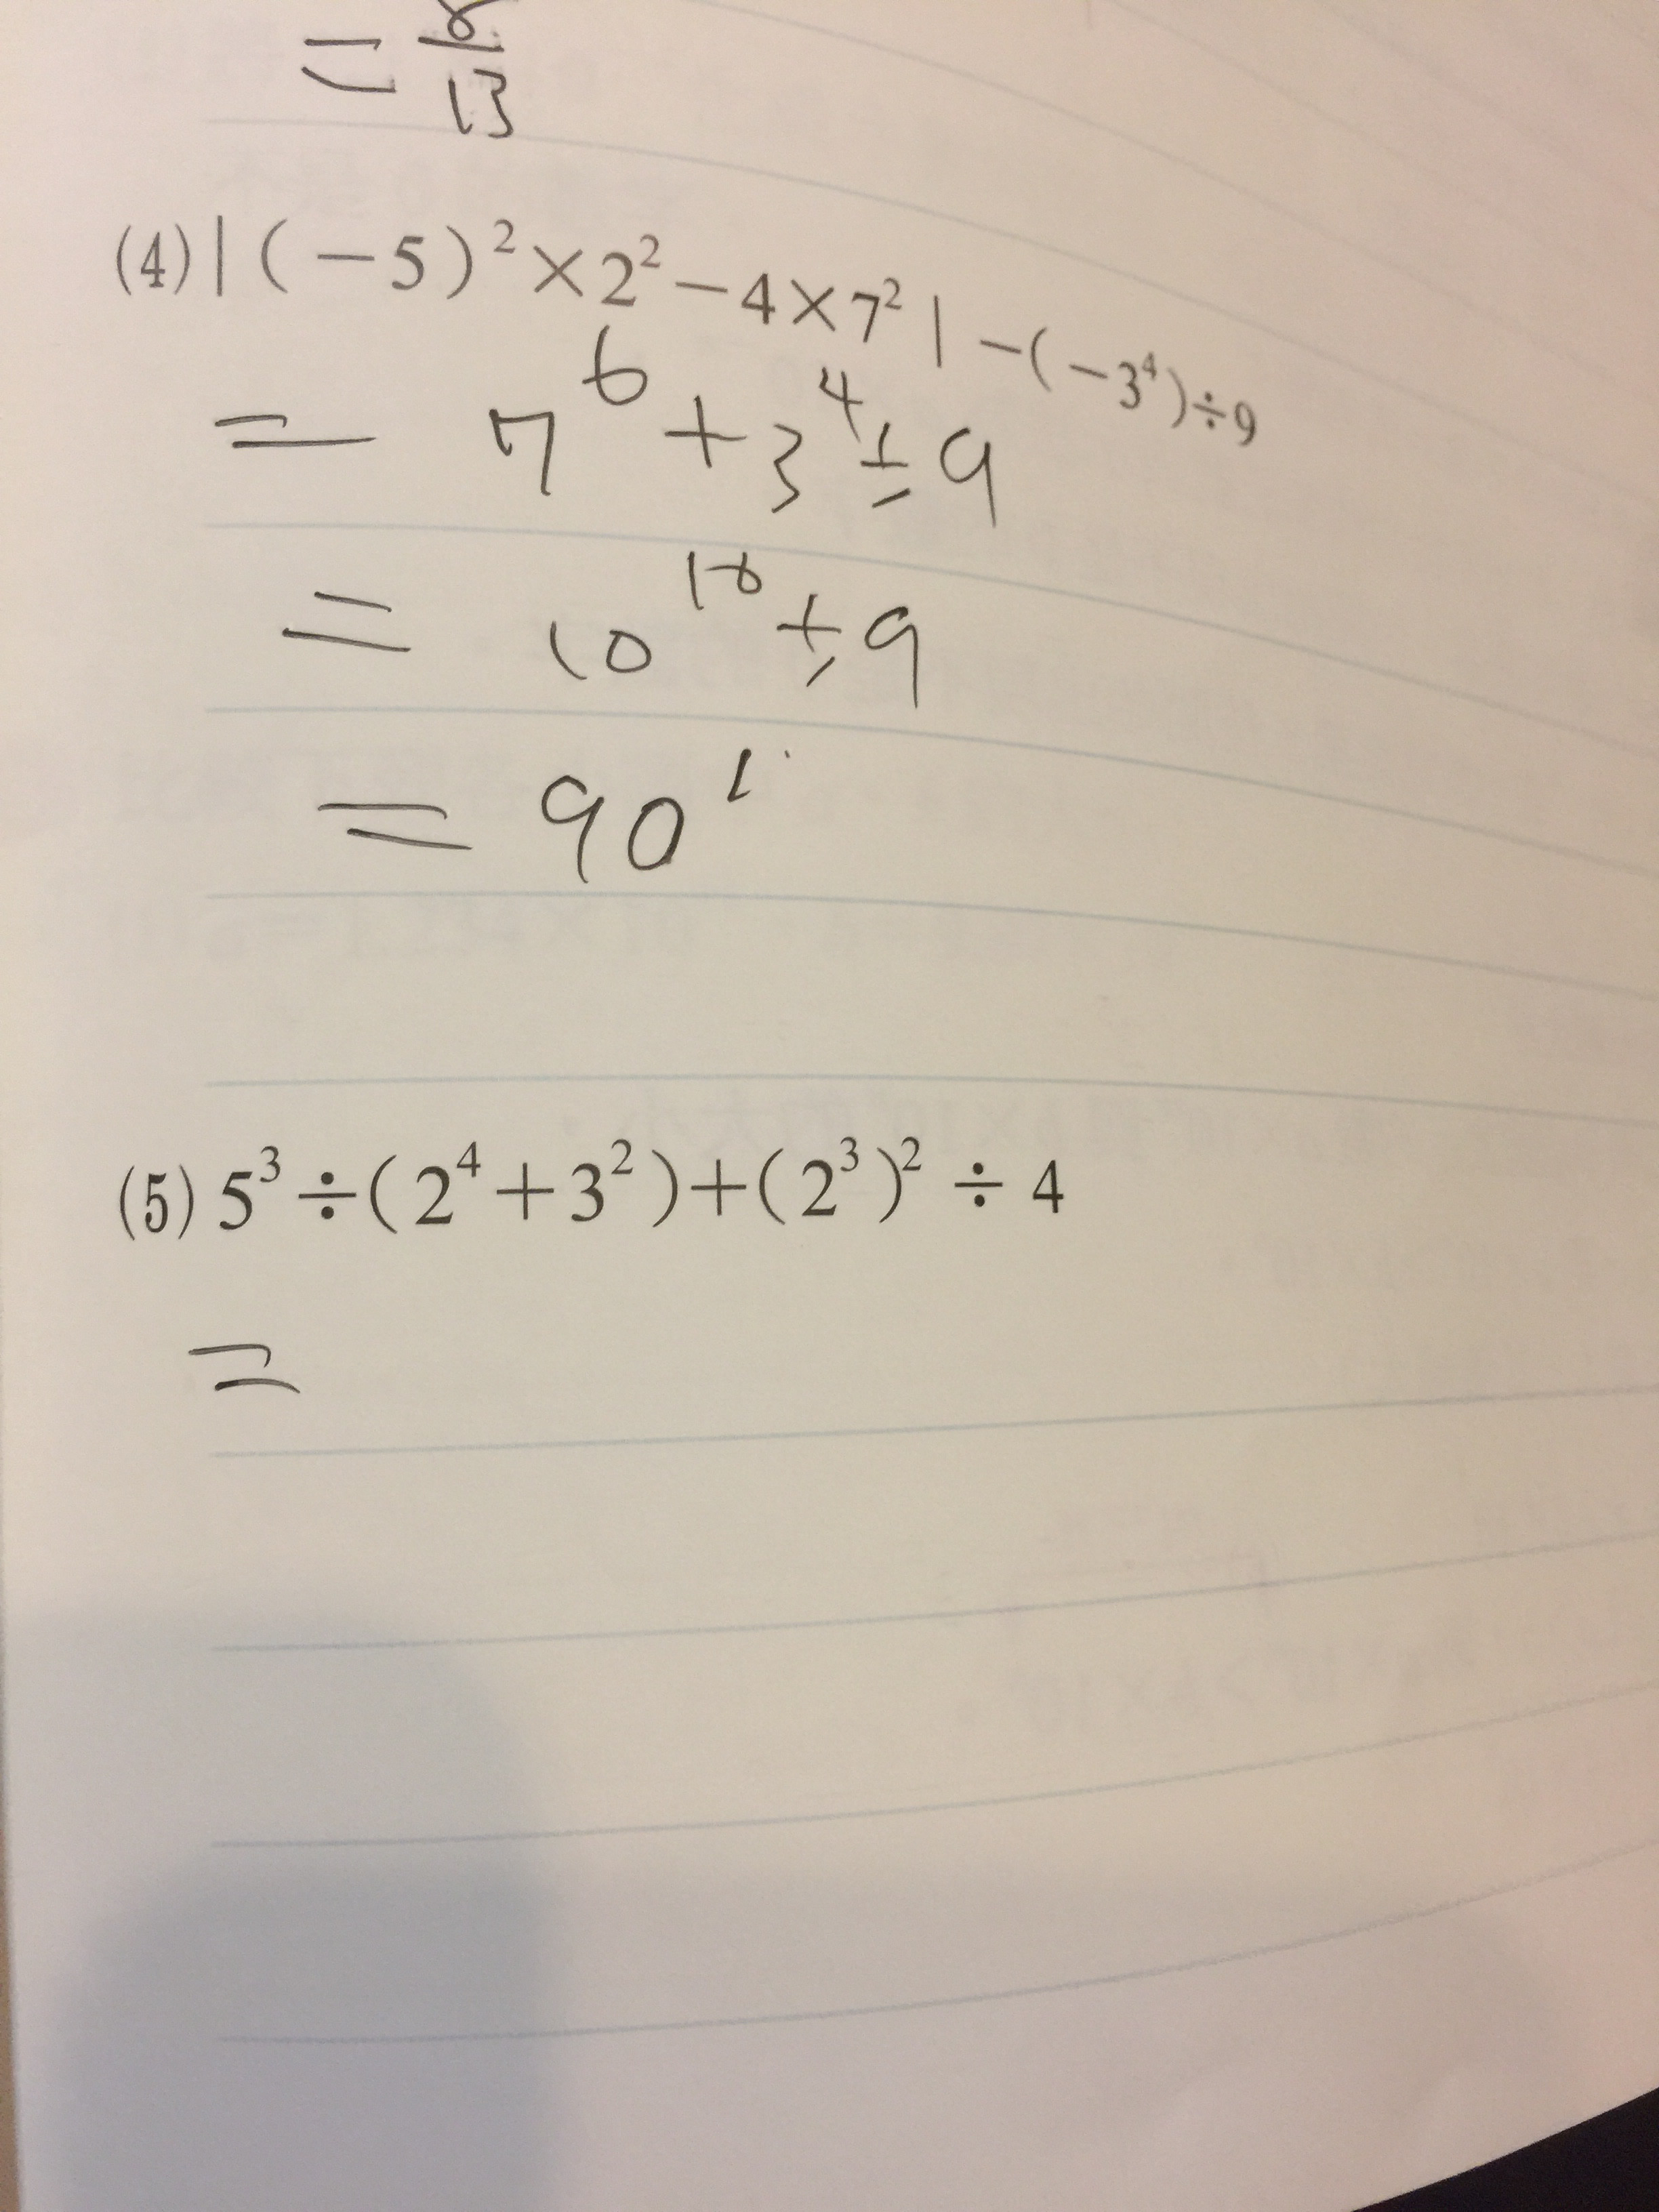 = 8/13
(4) |(-5)²×2²-4×7²|-(-3⁴)÷9
= 7⁶+3⁴÷9
= 10¹⁰÷9
= 90¹
(5) 5³÷(2⁴+3²)+(2³)²÷4
=